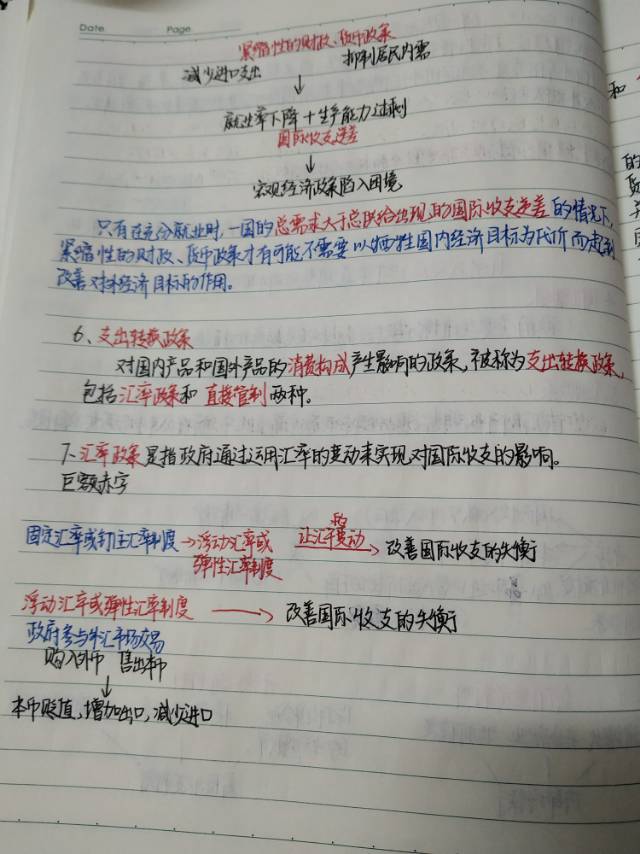 Date
Page
紧缩性的财政、货币政策
减少进口支出 抑制居民内需
↓
就业率下降+生产能力过剩
国际收支逆差
↓
宏观经济政策陷入困境
只有在充分就业时,一国的总需求大于总供给出现的国际收支逆差的情况下,
紧缩性的财政、货币政策才有可能不需要以牺牲国内经济目标为代价而起到
改善对外经济目标的作用。
6、支出转换政策
对国内产品和国外产品的消费构成产生影响的政策,被称为支出转换政策,
包括汇率政策和直接管制两种。
7、汇率政策是指政府通过运用汇率的变动来实现对国际收支的影响。
巨额赤字
固定汇率或钉住汇率制度→浮动汇率或
弹性汇率制度
让汇率变动→改善国际收支的失衡
浮动汇率或弹性汇率制度→改善国际收支的失衡
政府参与外汇市场交易
购入外币 售出本币
↓
本币贬值,增加出口,减少进口
和
的